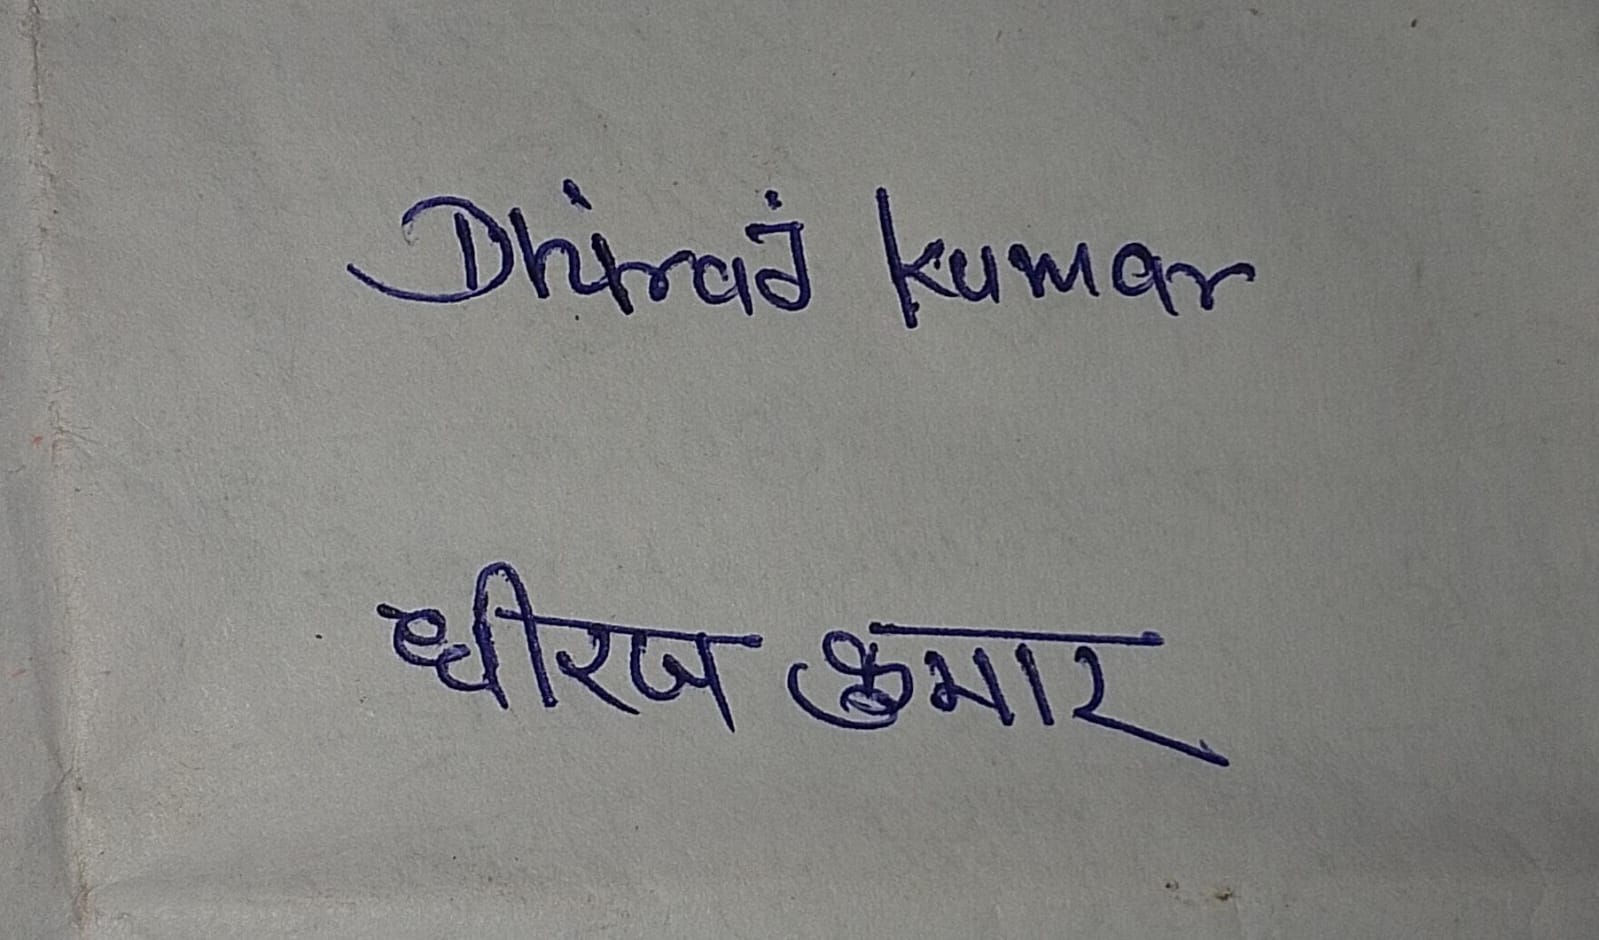 Dhiraj kumar
धीरज कुमार